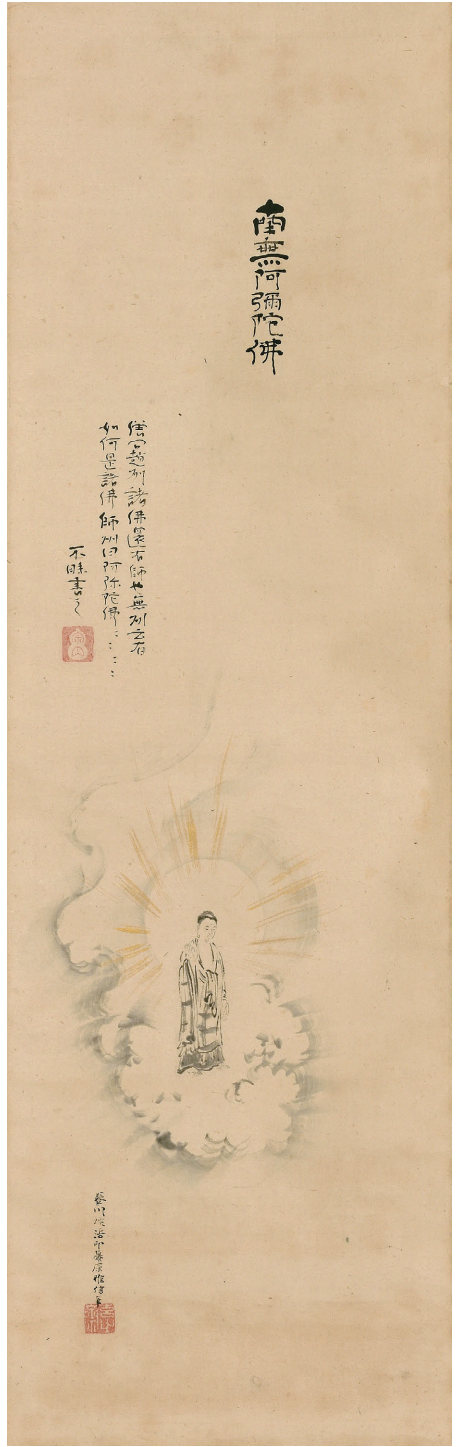 南無阿彌陀佛
僧問趙州諸佛還有師也無州云有
如何是諸佛師州曰阿弥陀佛〻〻〻〻
不昧書之
養川院法印藤原惟信筆